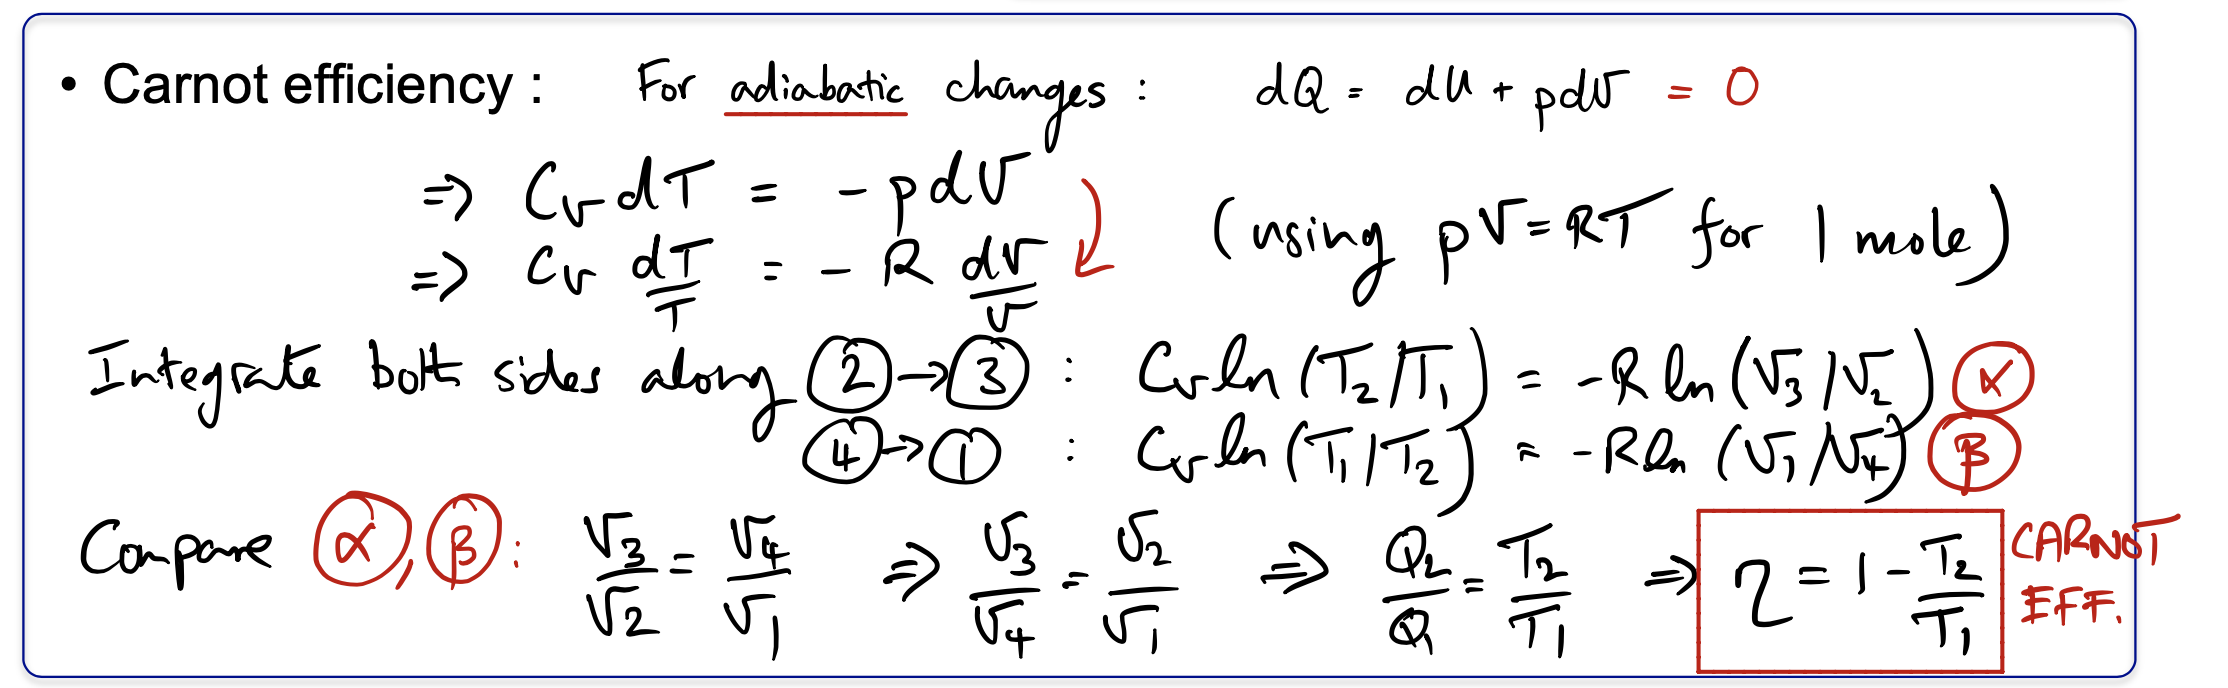 • Carnot efficiency : For adiabatic changes : dQ = dU + pdV = 0
⇒ Cv dT = - pdV
(using pV = RT for 1 mole)
⇒ Cv dT/T = - R dV/V
Integrate both sides along ② → ③ : Cv ln (T2/T1) = -R ln (V3/V2) α
④ → ① : Cv ln (T1/T2) = -R ln (V1/V4) β
Compare α, β : V3/V2 = V4/V1 ⇒ V3/V4 = V2/V1 ⇒ Q2/Q1 = T2/T1 ⇒ η = 1 - T2/T1 CARNOT
EFF.